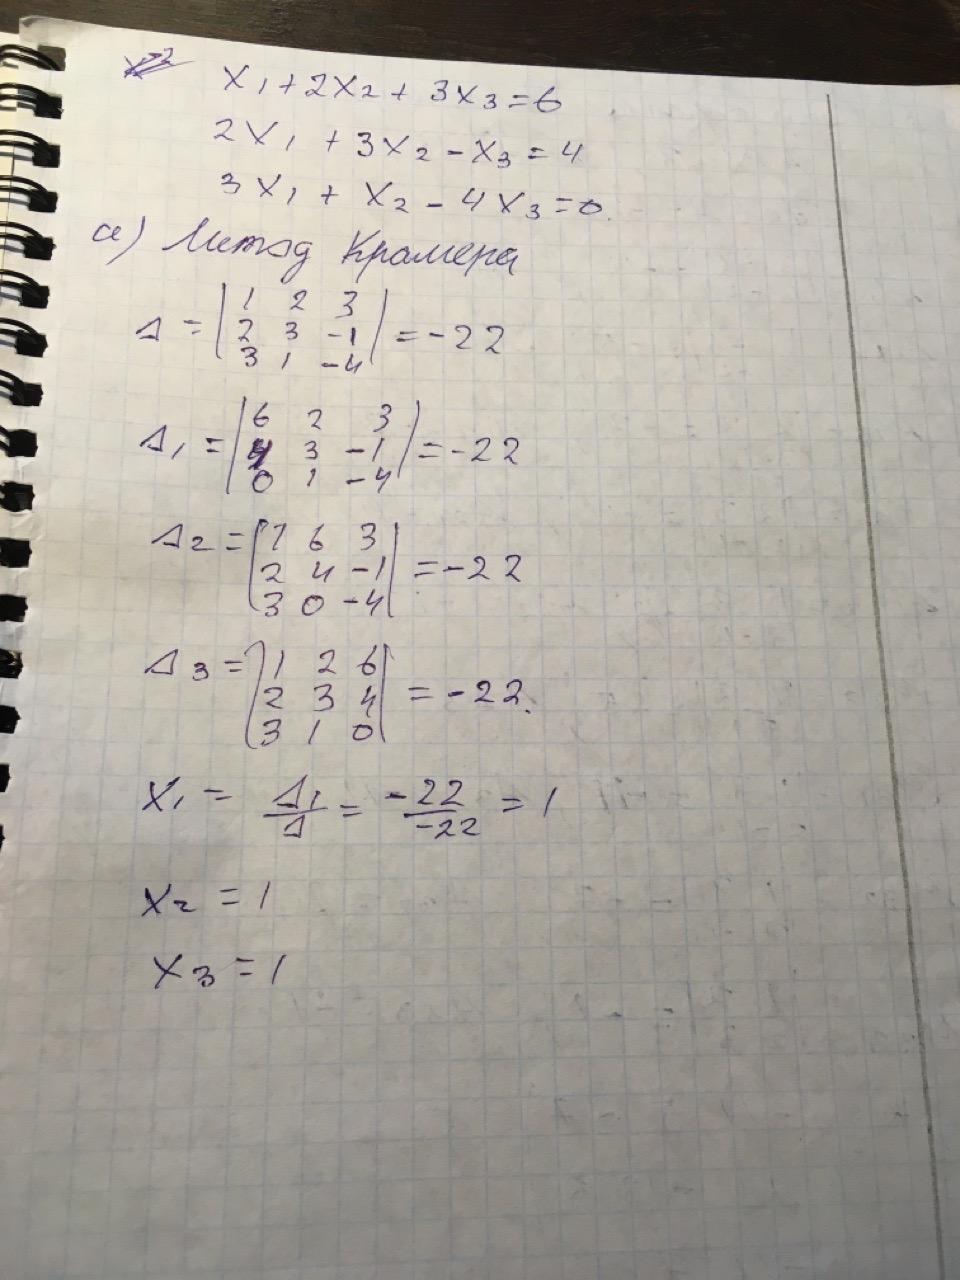 x₁ + 2x₂ + 3x₃ = 6
2x₁ + 3x₂ - x₃ = 4
3x₁ + x₂ - 4x₃ = 0.
а) Метод Крамера
Δ = | 1 2 3 |
| 2 3 -1 | = -22
| 3 1 -4 |
Δ₁ = | 6 2 3 |
| 4 3 -1 | = -22
| 0 1 -4 |
Δ₂ = | 1 6 3 |
| 2 4 -1 | = -22
| 3 0 -4 |
Δ₃ = | 1 2 6 |
| 2 3 4 | = -22.
| 3 1 0 |
x₁ = Δ₁/Δ = -22/-22 = 1
x₂ = 1
x₃ = 1